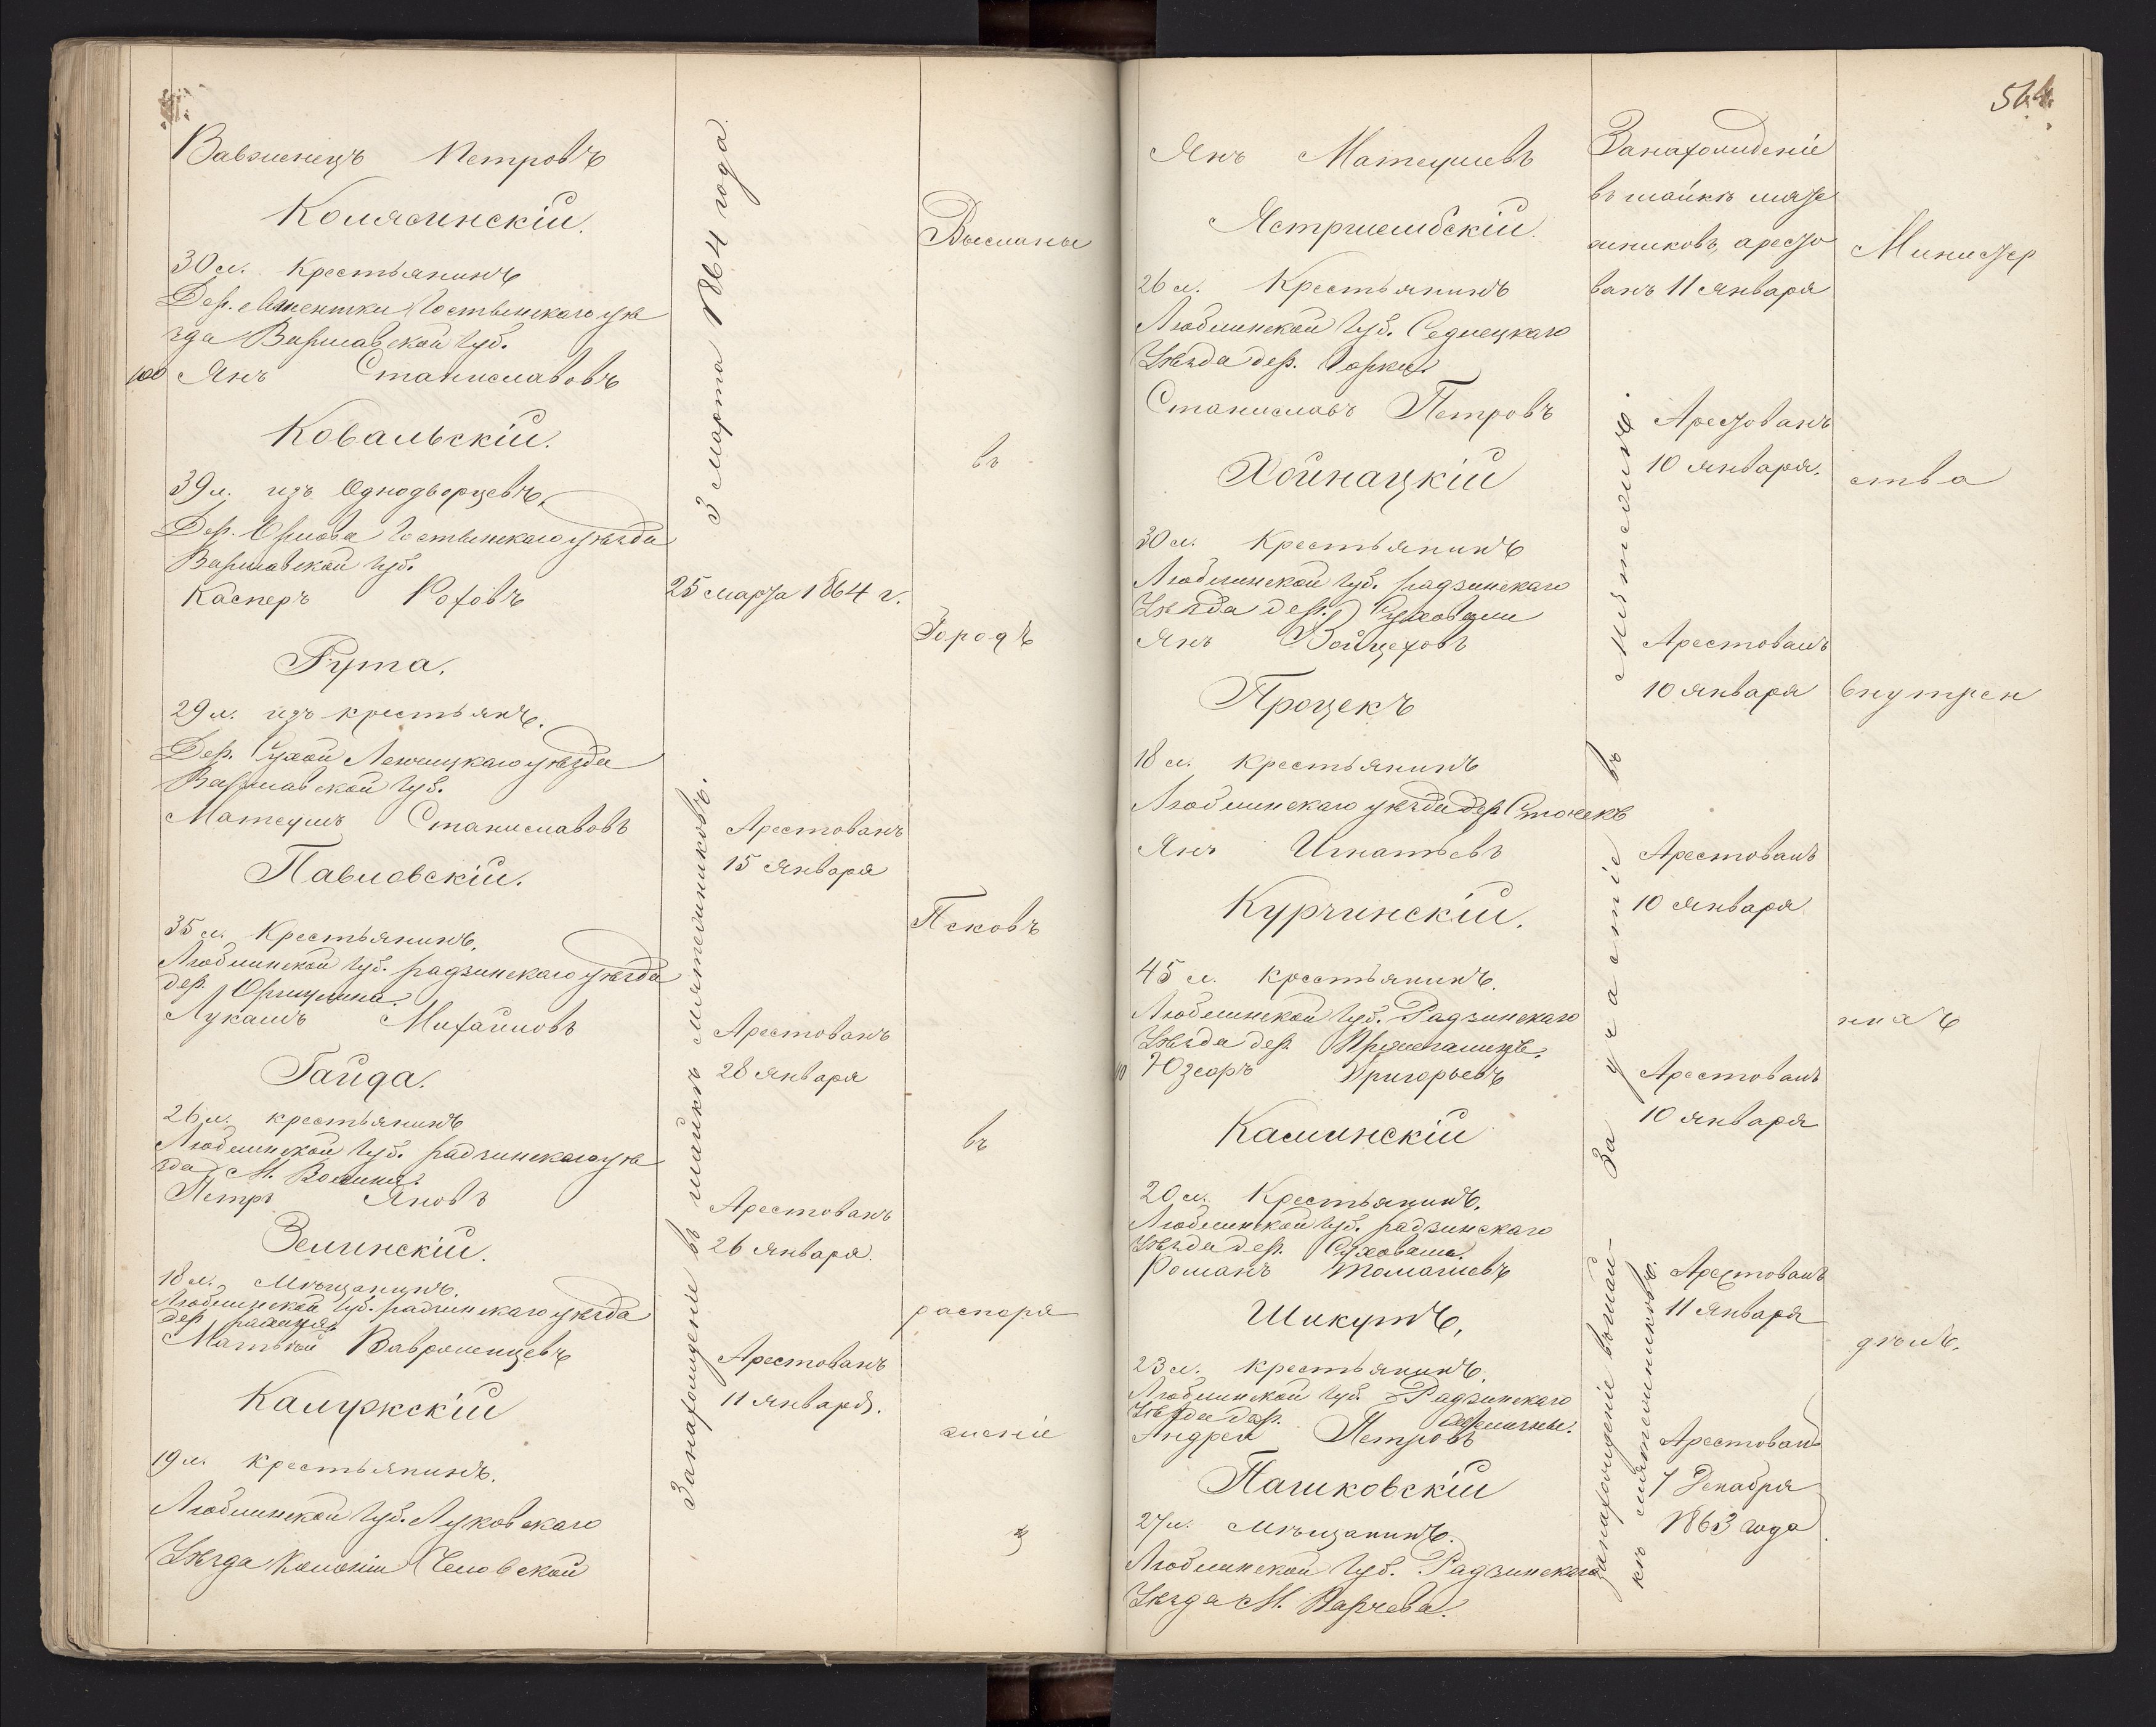 Вавженецъ Петровъ
Колясинскій.
30 л. Крестьянинъ
Дер. Гостынскаго уѣ
зда Варшавской Губ.
100 Янъ Станиславовъ
Ковальскій.
39 л. изъ Однодворцевъ.
Дер. Орлова Гостынскаго уѣзда
Варшавской Губ.
Касперъ Роховъ
Гута.
29 л. изъ крестьянъ.
Дер. Сухой Ленчицкаго уѣзда
Варшавской Губ.
Матеушъ Станиславовъ
Павловскій.
35 л. Крестьянинъ.
Люблинской Губ. Радзинскаго уѣзда
дер.
Лукашъ Михайловъ
Гайда.
26 л. крестьянинъ
Люблинской Губ. Радзинскаго уѣ
зда М. Вогиня.
Петръ Яновъ
Зелинскій.
18 л. Мѣщанинъ.
Люблинской Губ. Радзинскаго уѣзда
дер.
Матвѣй Вавроменцевъ
Калужскій
19 л. крестьянинъ.
Люблинской Губ. Луковскаго
Уѣзда Колоніи
3 марта 1864 года.
25 марта 1864 г.
За нахожденіе въ шайкѣ мятежниковъ.
Арестованъ
15 Января
Арестованъ
28 Января
Арестованъ
26 Января.
Арестованъ
11 Января.
Высланы
въ
Городъ
Псковъ
въ
распоря
женіе
564.
Янъ Матеушевъ
Ястржембскій.
26 л. Крестьянинъ
Люблинской Губ. Седлецкаго
Уѣзда дер. Горки.
Станиславъ Петровъ
Хойнацкій
30 л. Крестьянинъ
Люблинской Губ. Радзинскаго
Уѣзда дер. Суховоли
Янъ Войцеховъ
Процекъ
18 л. крестьянинъ
Люблинскаго уѣзда дер. Сточекъ
Янъ Игнатьевъ
Курчинскій.
45 л. крестьянинъ.
Люблинской Губ. Радзинскаго
Уѣзда дер.
10 Юзефъ Григорьевъ
Каминскій
20 л. Крестьянинъ.
Люблинской Губ. Радзинскаго
Уѣзда дер.
Романъ Томашевъ
Шикутъ,
23 л. крестьянинъ.
Люблинской Губ. Радзинскаго
Уѣзда дер.
Андрей Петровъ
Пашковскій
27 л. мѣщанинъ.
Люблинской Губ. Радзинскаго
Уѣзда М. Парчева.
За нахожденіе
въ шайкѣ мяте
жниковъ, аресто
ванъ 11 Января
За участіе въ мятежѣ.
Арестованъ
10 Января.
Арестованъ
10 Января
Арестованъ
10 Января
Арестованъ
10 Января
За нахожденіе въ шай-
кѣ мятежниковъ.
Арестованъ
11 Января
Арестованъ
7 Декабря
1863 года.
Министер
ства
внутрен
нихъ
дѣлъ.